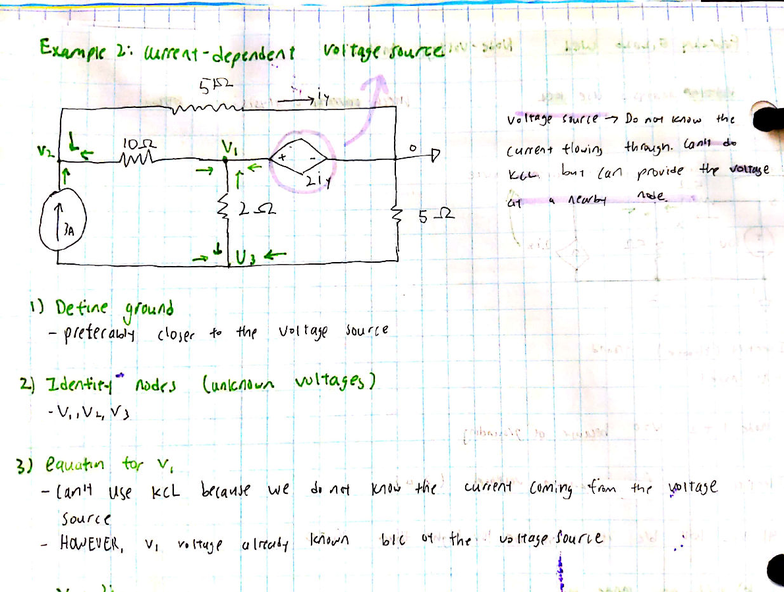 Example 2: current-dependent voltage source
5Ω
iy
V2
10Ω
V1
+ -
0
2iy
3A
2Ω
5Ω
V3
Voltage source → Do not know the
current flowing through. Can't do
KCL but can provide the voltage
at a nearby node.
1) Define ground
- preferably closer to the voltage source
2) Identify nodes (unknown voltages)
- V1, V2, V3
3) equation for V1
- Can't use KCL because we do not know the current coming from the voltage
source
- HOWEVER, V1 voltage already known b/c of the voltage source